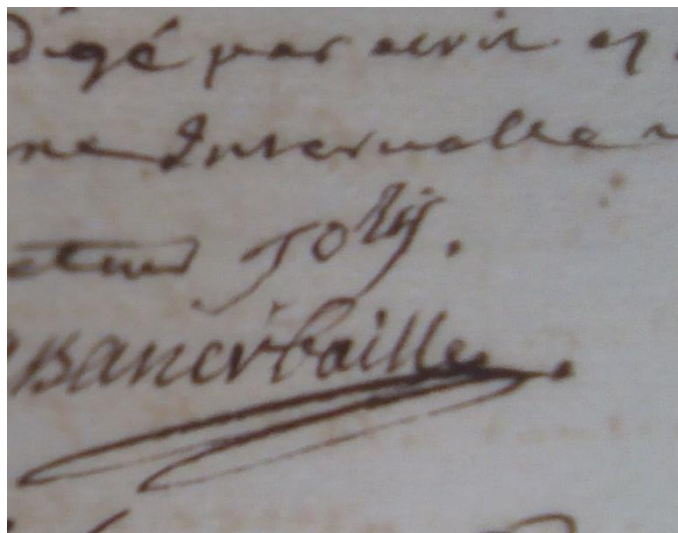 digé par écrit et
ne Intervalle
Joly.
Banerbaille.